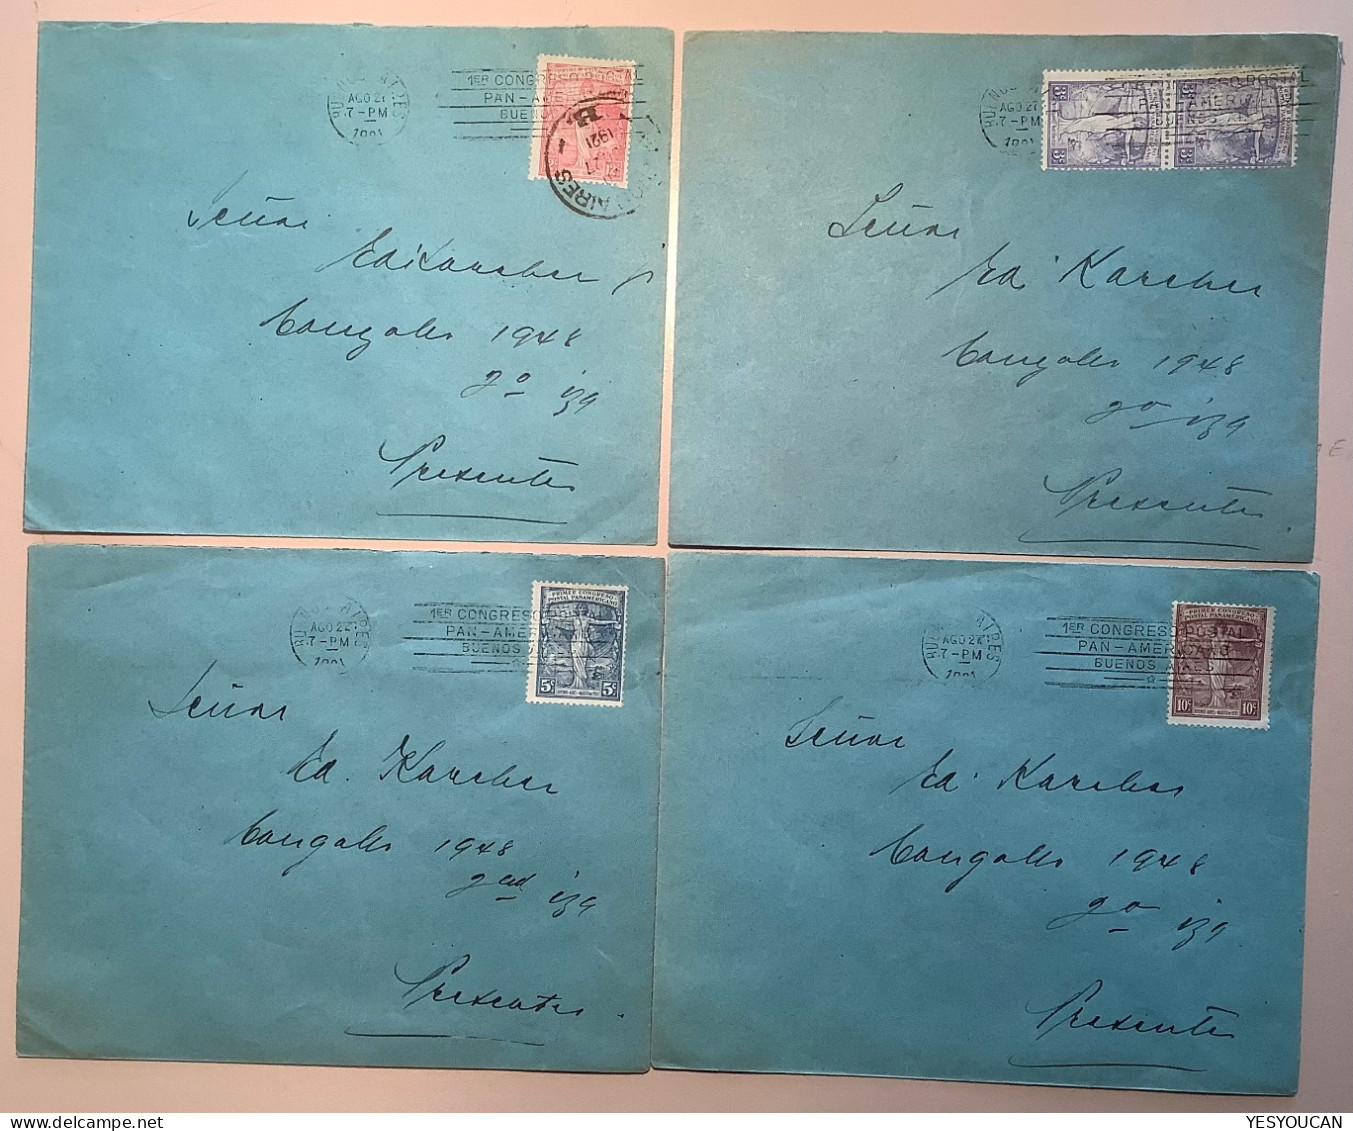 BUENOS AIRES
AGO 27
7-PM
1ER CONGRESO POSTAL
PAN-AMERI
BUENO
AIRES
1921
Señor
Ed. Karcher
Cangallo 1948
2º izq
Presente
BUENOS AIRES
AGO 27
7-PM
CONGRESO POSTAL
PAN-AMERIC
3c 3c
Señor
Ed. Karcher
Cangallo 1948
2º izq
Presente.
BUENOS AIRES
AGO 27
7-PM
1ER CONGRESO POSTAL
PAN-AMERI
BUENOS A
PRIMER CONGRESO
POSTAL PANAMERICANO
5c 5c
Señor
Ed. Karcher
Cangallo 1948
izq
Presente.
BUENOS AIRES
AGO 27
7-PM
1ER CONGRESO POSTAL
PAN-AMERICANO
BUENOS AIRES
PRIMER CONGRESO
POSTAL PANAMERICANO
10c 10c
Señor
Ed. Karcher
Cangallo 1948
2º izq
Presente
YESYOUCAN